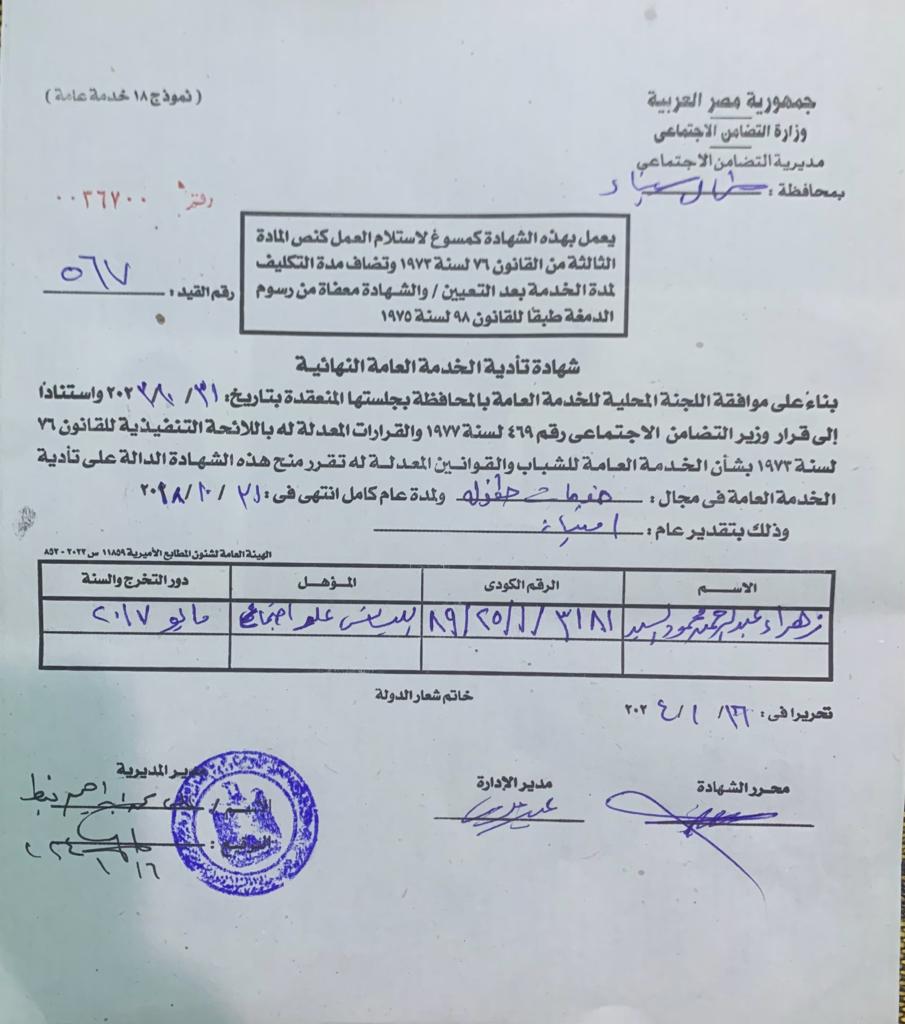 جمهورية مصر العربية
وزارة التضامن الاجتماعى
مديرية التضامن الاجتماعي
بمحافظة : شمال سيناء
( نموذج ١٨ خدمة عامة )
دفتر ٠٠٣٦٧٠٠
رقم القيد : ٥٦٧
يعمل بهذه الشهادة كمسوغ لاستلام العمل كنص المادة
الثالثة من القانون ٧٦ لسنة ١٩٧٣ وتضاف مدة التكليف
لمدة الخدمة بعد التعيين / والشهادة معفاة من رسوم
الدمغة طبقا للقانون ٩٨ لسنة ١٩٧٥
شهادة تأدية الخدمة العامة النهائية
بناء على موافقة اللجنة المحلية للخدمة العامة بالمحافظة بجلستها المنعقدة بتاريخ : ٣١ / ١٠ / ٢٠٢٣ واستنادا
إلى قرار وزير التضامن الاجتماعى رقم ٤٦٩ لسنة ١٩٧٧ والقرارات المعدلة له باللائحة التنفيذية للقانون ٧٦
لسنة ١٩٧٣ بشأن الخدمة العامة للشباب والقوانين المعدلة له تقرر منح هذه الشهادة الدالة على تأدية
الخدمة العامة فى مجال : طفولة ولمدة عام كامل انتهى فى : ٣١ / ١٠ / ٢٠١٨
وذلك بتقدير عام : امتياز
الهيئة العامة لشئون المطابع الأميرية ١١٨٥٩ س ٢٠٢٢ - ٨٥٢
الاسم الرقم الكودى المؤهل دور التخرج والسنة
زهراء عبدالرحمن محمود السيد ٨٩/٢٥/١/٣١٨١ ليسانس علم اجتماع مايو ٢٠١٧
خاتم شعار الدولة
تحريرا فى : ١٦ / ١ / ٢٠٢٤
محرر الشهادة
مدير الإدارة
مدير المديرية
الاسم /
التوقيع :